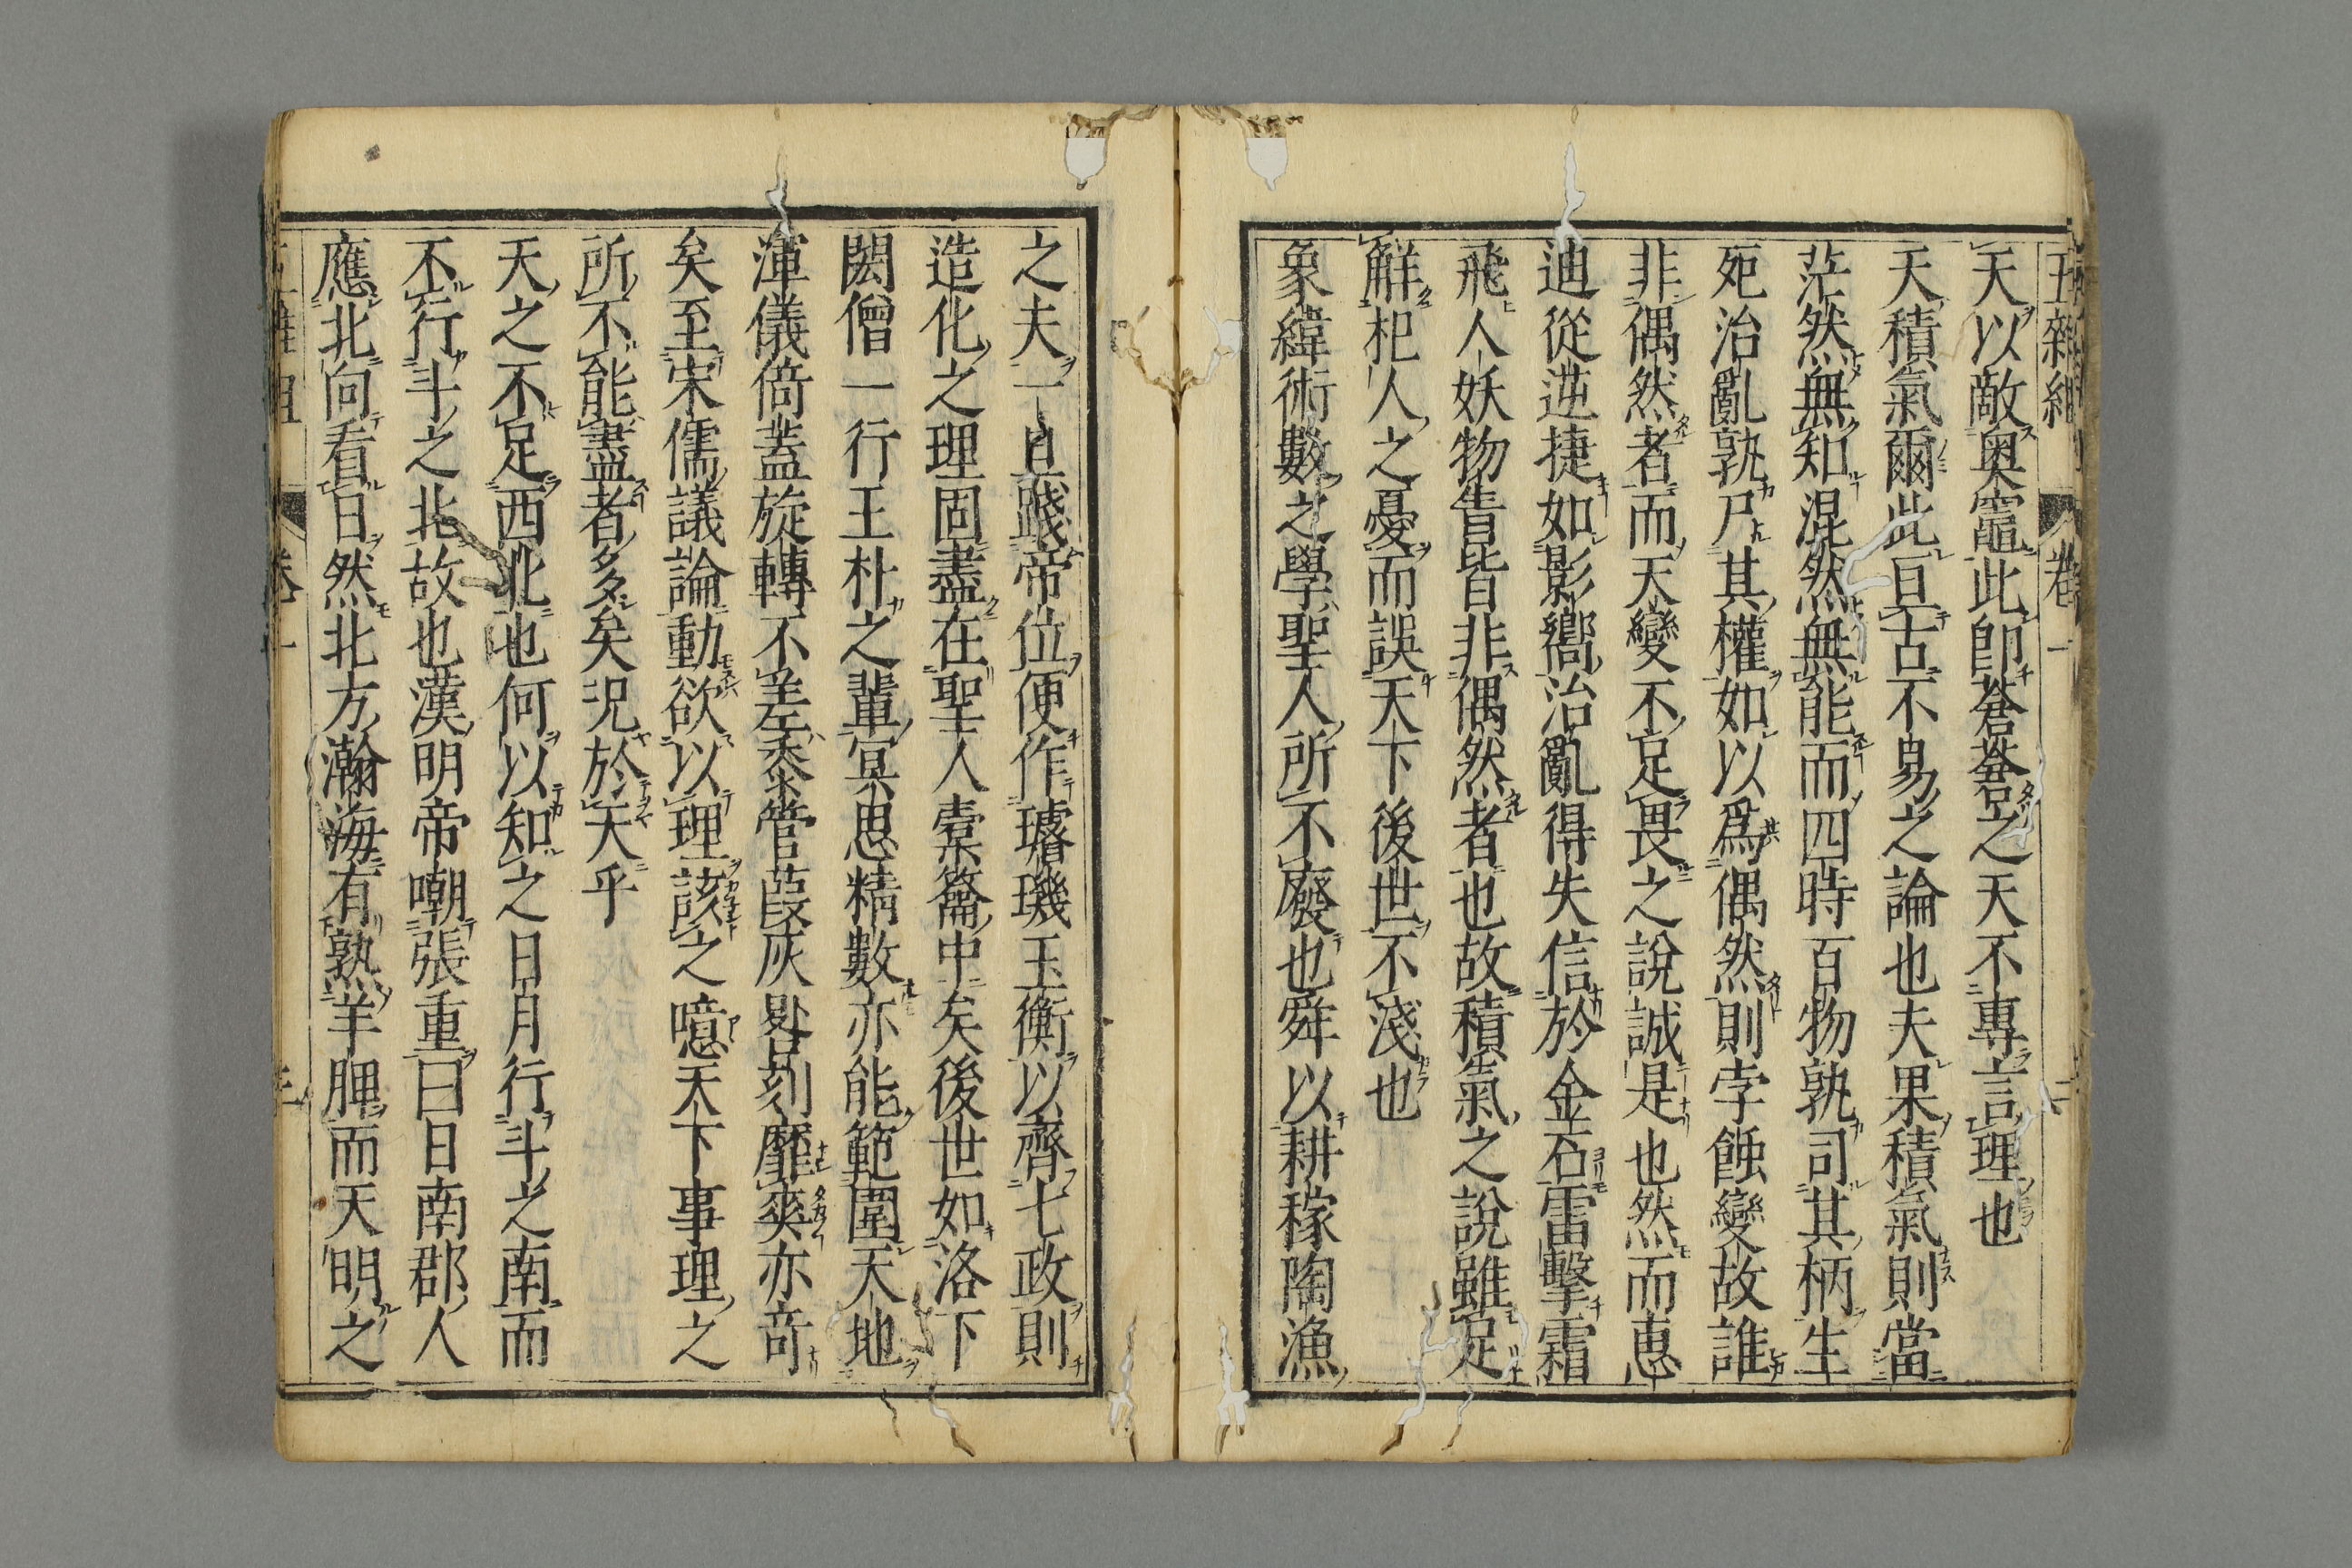 五雜組 卷一 二
天以敵奧竈此卽蒼蒼之天不專言理也
天積氣爾此亘古不易之論也夫果積氣則當
茫然無知混然無能而四時百物孰司其柄生
死治亂孰尸其權如以爲偶然則孛蝕變故誰
非偶然者而天變不足畏之說誠是也然而惠
迪從逆捷如影嚮治亂得失信於金石雷擊霜
飛人妖物眚皆非偶然者也故積氣之說雖足
解杞人之憂而誤天下後世不淺也
象緯術數之學聖人所不廢也舜以耕稼陶漁
之夫一旦踐帝位便作璿璣玉衡以齊七政則
造化之理固盡在聖人橐籥中矣後世如洛下
閎僧一行王朴之輩冥思精數亦能範圍天地
渾儀倚蓋旋轉不差黍管葭灰晷刻靡爽亦奇
矣至宋儒議論動欲以理該之噫天下事理之
所不能盡者多矣況於天乎
天之不足西北也何以知之日月行斗之南而
不行斗之北故也漢明帝嘲張重曰日南郡人
應北向看日然北方瀚海有熟羊胛而天明之
卷一